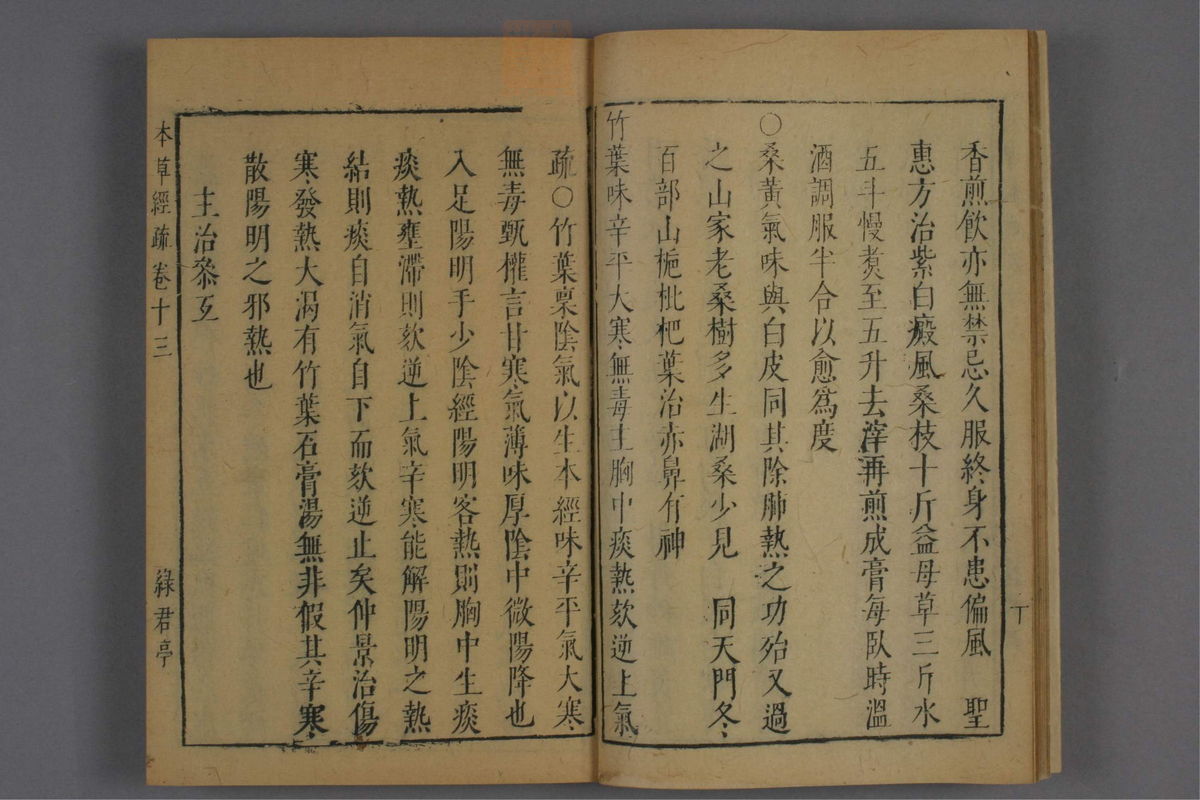 香煎飲亦無禁忌久服終身不患偏風　聖
惠方治紫白癜風桑枝十斤益母草三斤水
五斗慢煑至五升去滓再煎成膏每臥時溫
酒調服半合以愈爲度
○桑黃氣味與白皮同其除肺熱之功殆又過
之山家老桑樹多生湖桑少見　同天門冬
百部山梔枇杷葉治赤鼻有神
竹葉味辛平大寒無毒主胸中痰熱欬逆上氣
疏○竹葉稟陰氣以生本經味辛平氣大寒
無毒甄權言甘寒氣薄味厚陰中微陽降也
入足陽明手少陰經陽明客熱則胸中生痰
痰熱壅滯則欬逆上氣辛寒能解陽明之熱
結則痰自消氣自下而欬逆止矣仲景治傷
寒發熱大渴有竹葉石膏湯無非假其辛寒
散陽明之邪熱也
主治叅互
本草經疏卷十三
綠君亭